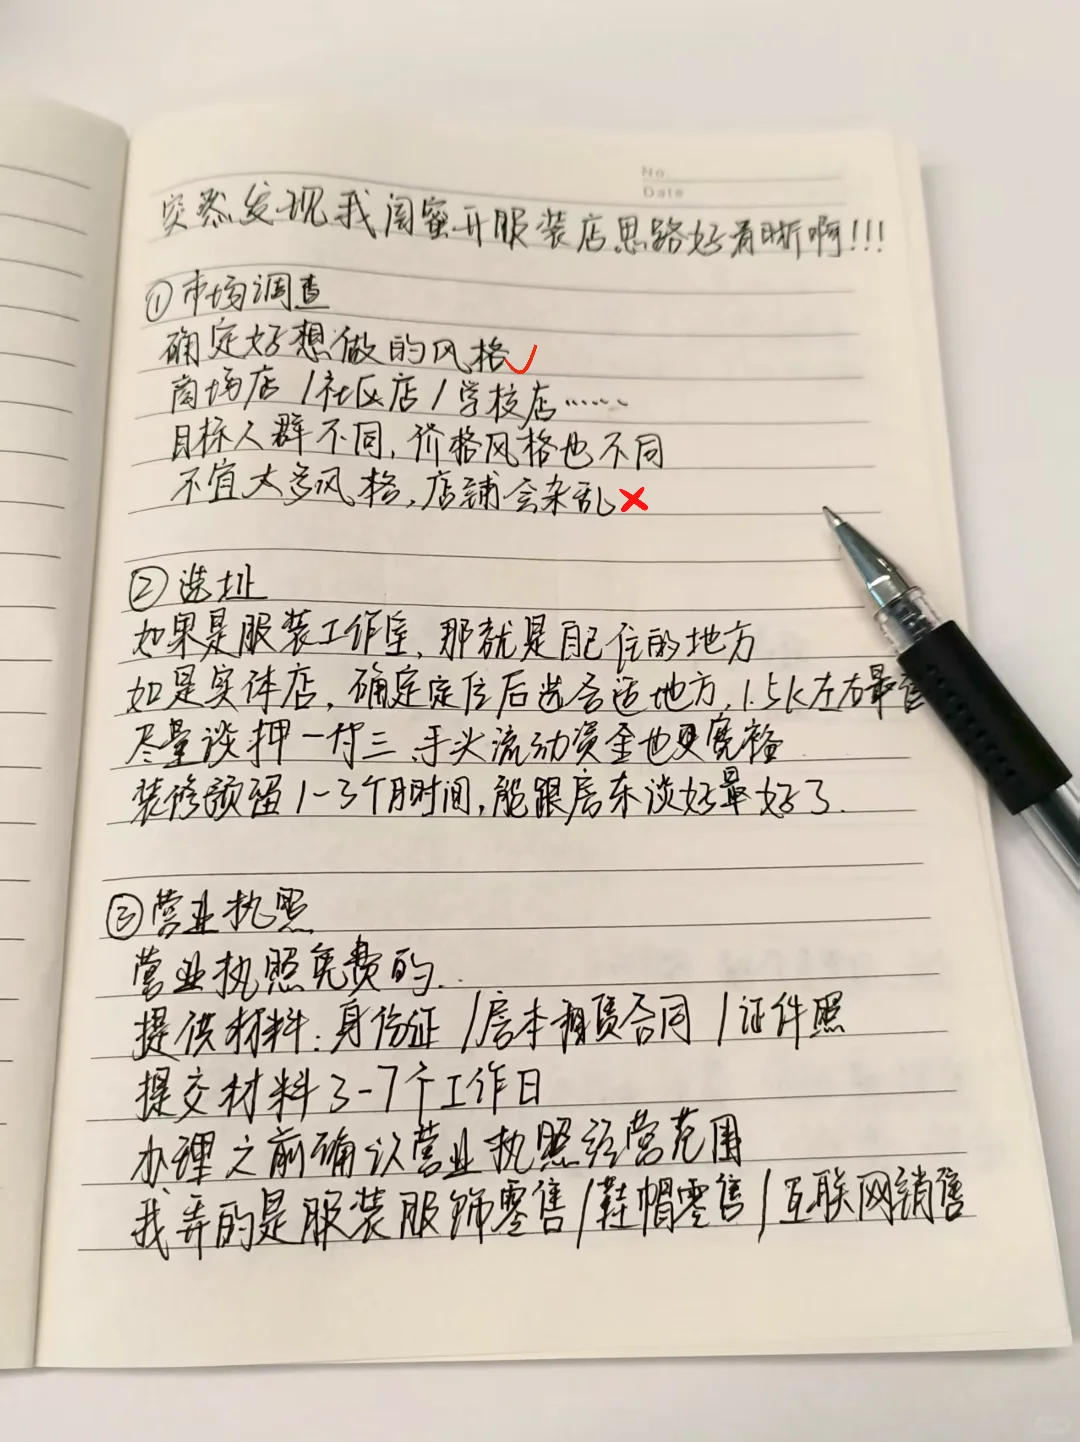 No.
Date
突然发现我闺蜜开服装店思路好清晰啊!!!
①市场调查
确定好想做的风格✓
商场店/社区店/学校店……
目标人群不同,价格风格也不同
不宜太多风格,店铺会杂乱×
②选址
如果是服装工作室,那就是自己住的地方
如是实体店,确定定位后选合适地方,1.5k左右最
尽量谈押一付三,手头流动资金也更宽裕
装修预留1-3个月时间,能跟房东谈好最好了.
③营业执照
营业执照免费的..
提供材料:身份证/房本租赁合同/证件照
提交材料3-7个工作日
办理之前确认营业执照经营范围
我弄的是服装服饰零售/鞋帽零售/互联网销售